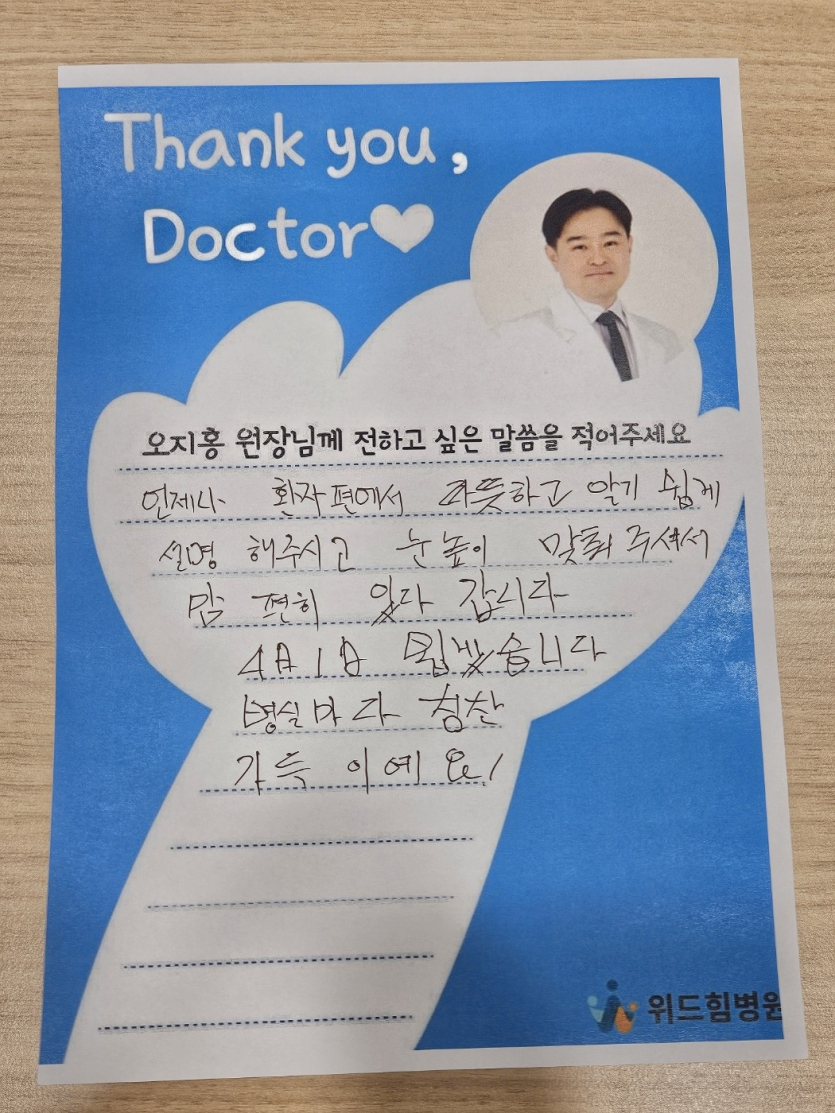 Thank you,
Doctor
오지홍 원장님께 전하고 싶은 말씀을 적어주세요
언제나 환자편에서 따뜻하고 알기 쉽게
설명 해주시고 눈높이 맞춰 주셔서
맘 편히 있다 갑니다
뵙겠습니다
병실마다 칭찬
가득 이예요!
위드힘병원